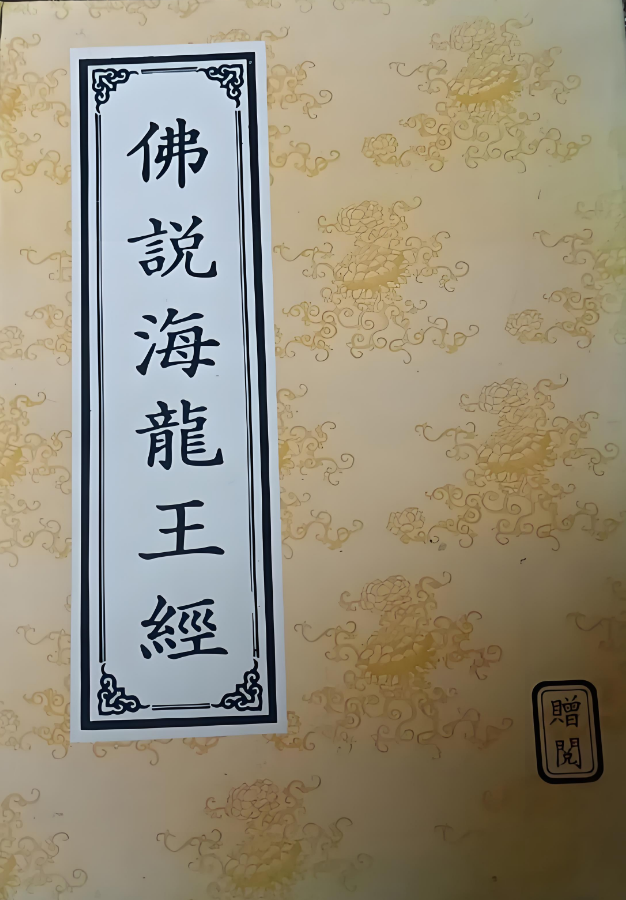 佛說海龍王經
贈閱